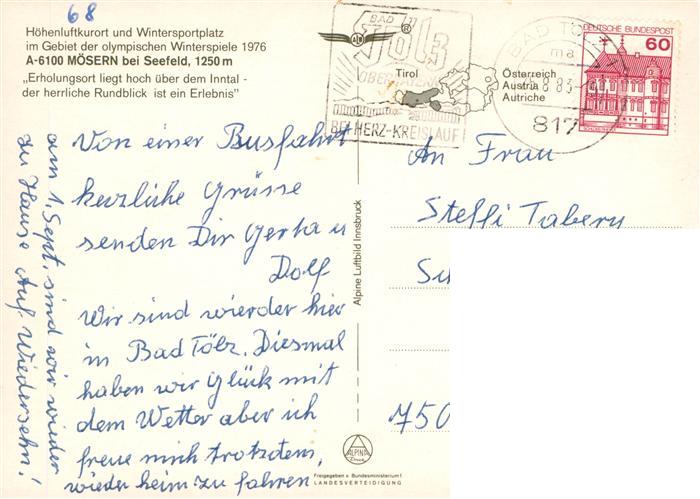 68
Höhenluftkurort und Wintersportplatz
im Gebiet der olympischen Winterspiele 1976
A-6100 MÖSERN bei Seefeld, 1250 m
„Erholungsort liegt hoch über dem Inntal -
der herrliche Rundblick ist ein Erlebnis"
Tirol
Österreich
Austria
Autriche
BAD
Tölz
BEI HERZ-KREISLAUF
BAD TÖLZ
ma
817
DEUTSCHE BUNDESPOST
60
Von einer Busfahrt
herzliche Grüsse
senden Dir Gerta u
Dolf.
Wir sind wierder hier
in Bad Tölz. Diesmal
haben wir Glück mit
dem Wetter aber ich
freue mich trotzdem,
wieder heim zu fahren
am 1. Sept. sind wir wieder
zu Hause Auf Wiedersehn!
An Frau
Steffi Tabery
750
Alpine Luftbild Innsbruck
ALPINE
Freigegeben v. Bundesministerium f.
LANDESVERTEIDIGUNG